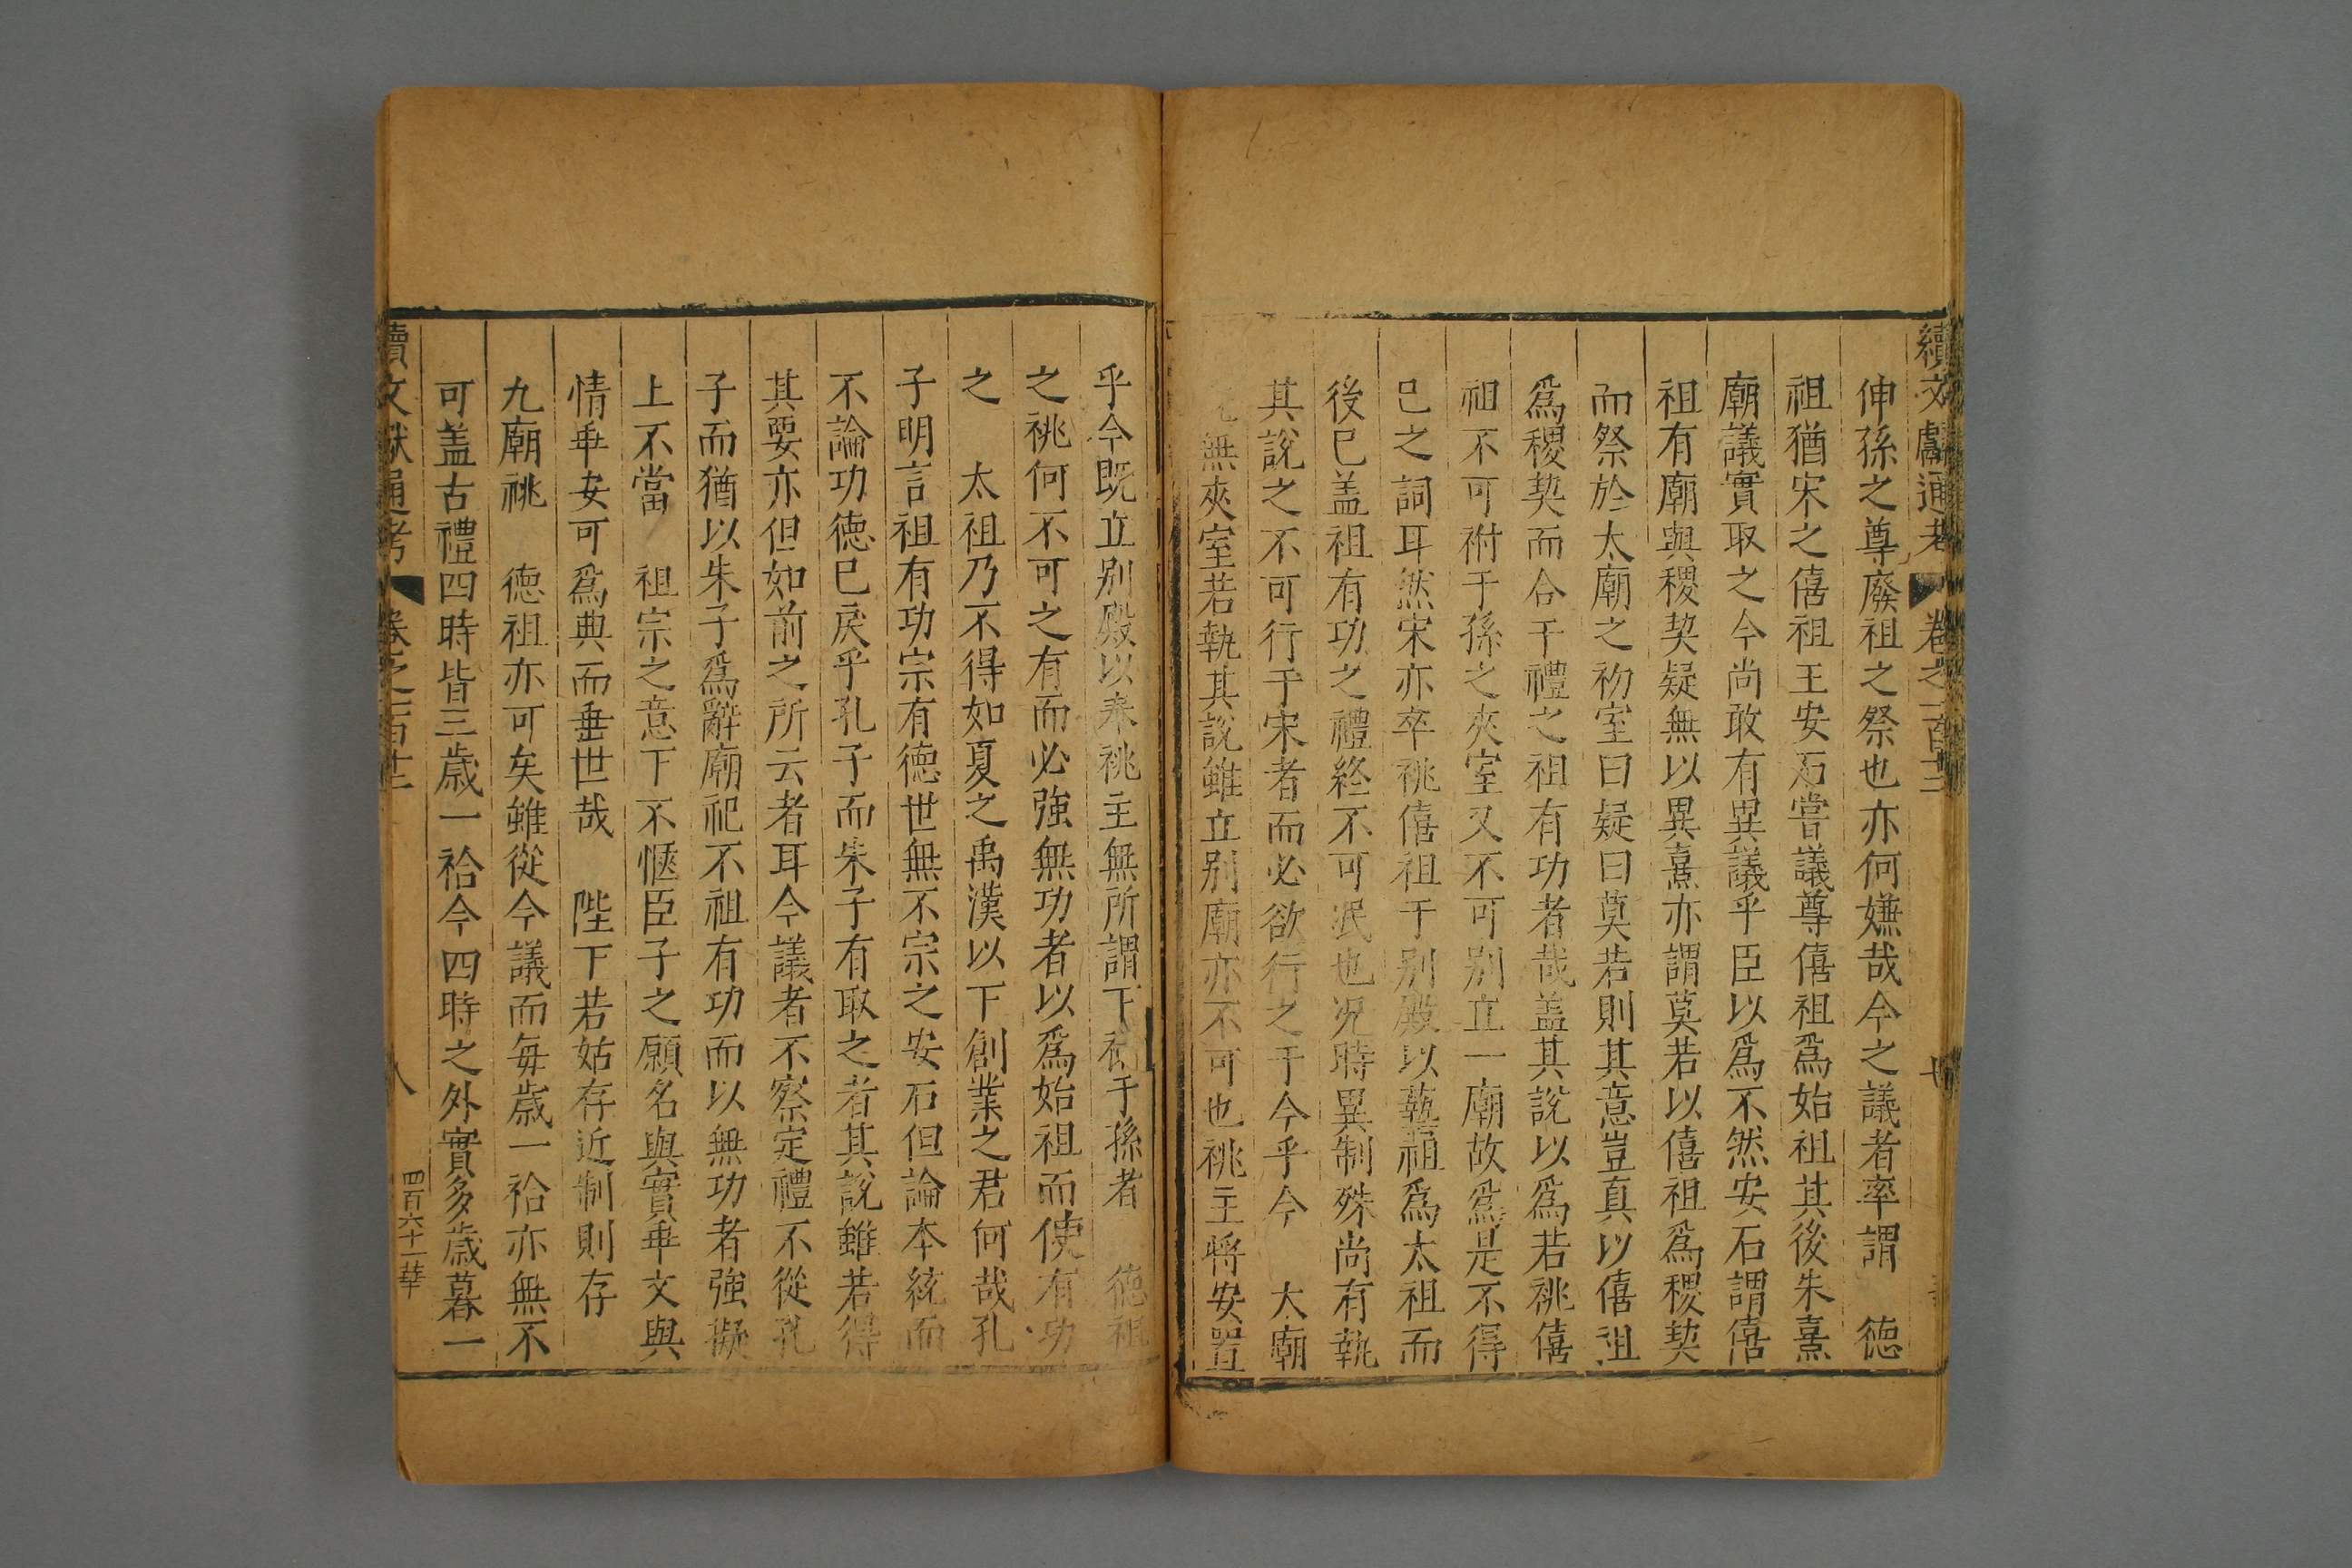 續文獻通考 卷之一百十三 七
伸孫之尊廢祖之祭也亦何嫌哉今之議者率謂 德
祖猶宋之僖祖王安石嘗議尊僖祖爲始祖其後朱熹
廟議實取之今尚敢有異議乎臣以爲不然安石謂僖
祖有廟與稷契疑無以異熹亦謂莫若以僖祖爲稷契
而祭於太廟之初室曰疑曰莫若則其意豈真以僖祖
爲稷契而合于禮之祖有功者哉盖其說以爲若祧僖
祖不可祔于孫之夾室又不可别立一廟故爲是不得
已之詞耳然宋亦卒祧僖祖于别殿以藝祖爲太祖而
後已盖祖有功之禮終不可泯也况時異制殊尚有執
其說之不可行于宋者而必欲行之于今乎今 太廟
無夾室若執其說雖立别廟亦不可也祧主將安置
乎今既立别殿以奉祧主無所謂下祔于孫者 德祖
之祧何不可之有而必強無功者以爲始祖而使有功
之 太祖乃不得如夏之禹漢以下創業之君何哉孔
子明言祖有功宗有德世無不宗之安石但論本統而
不論功德已戾乎孔子而朱子有取之者其說雖若得
其要亦但如前之所云者耳今議者不察定禮不從孔
子而猶以朱子爲辭廟祀不祖有功而以無功者強擬
上不當 祖宗之意下不愜臣子之願名與實乖文與
情乖安可爲典而垂世哉 陛下若姑存近制則存
九廟祧 德祖亦可矣雖從今議而每歲一祫亦無不
可盖古禮四時皆三歲一祫今四時之外實多歲暮一
續文獻通考 卷之一百十三 八 四百六十一華